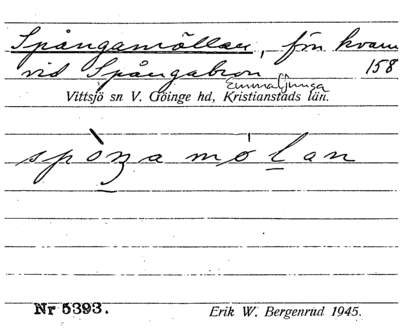 Spångamöllan, frn kvarn
vid Spångabron 158
Emmaljunga
Vittsjö sn V. Göinge hd, Kristianstads län.
spòŋa mó lan
Nr 5393. Erik W. Bergenrud 1945.